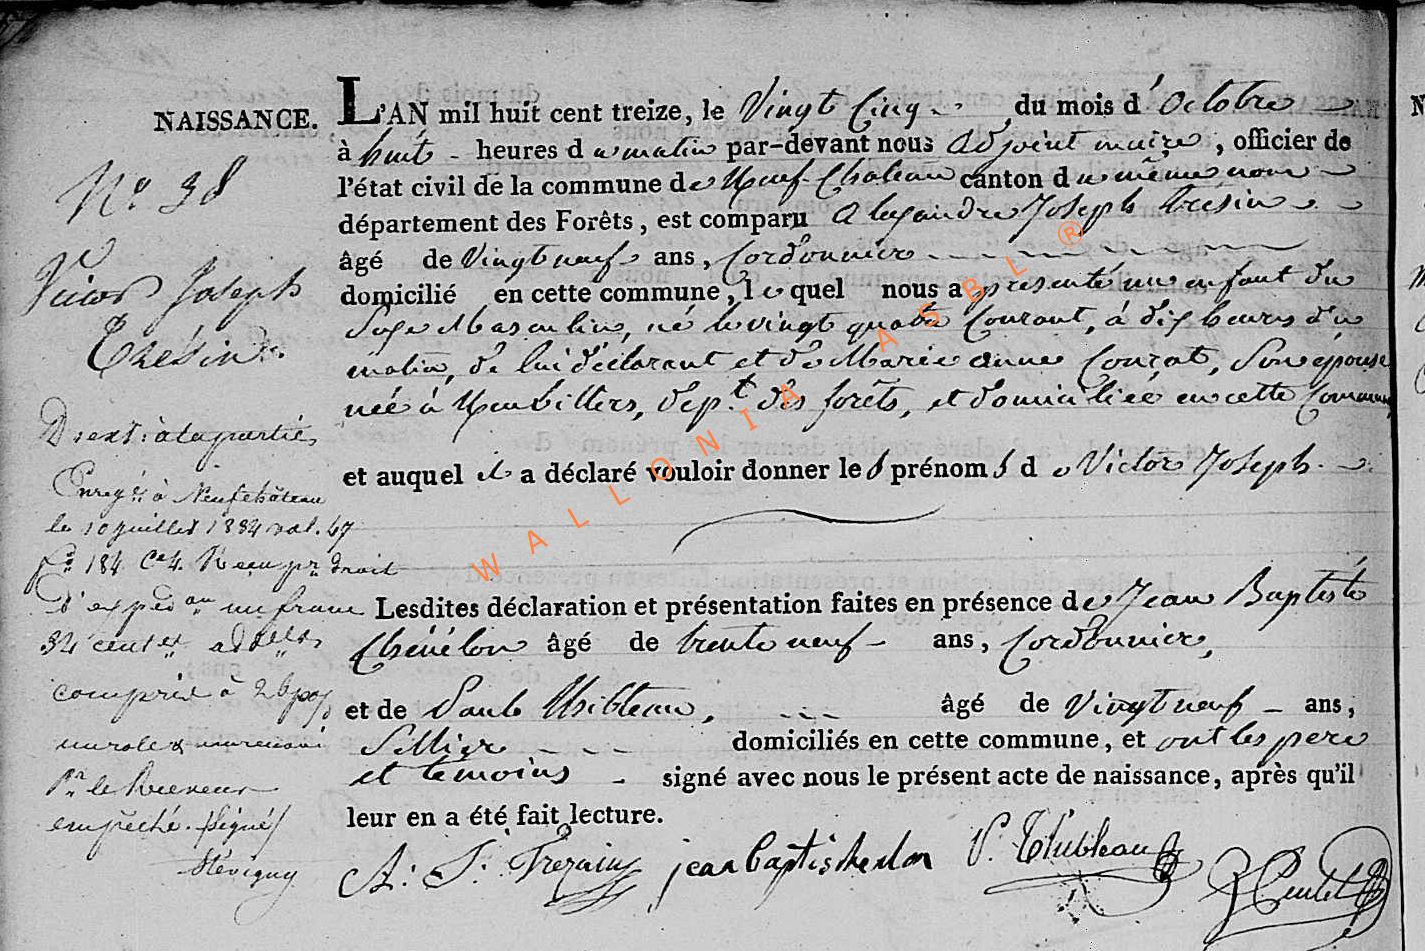 NAISSANCE.
N.o 38
Victor Joseph
Trésin
D'ext: à la partie
Enreg.é à Neufchâteau
le 10 juillet 1884 vol. 47
f.o 184 C.e 4. Reçu p.r droit
d'exped.on un franc
34 cent.es add.els
compris à 26 p%
Pr le Receveur
empêché. (signé)
L'AN mil huit cent treize, le Vingt Cinq du mois d'Octobre
à huit heures du matin par-devant nous adjoint maire, officier de
l'état civil de la commune de Neuf Chateau canton du même nom
département des Forêts, est comparu Alexandre Joseph Trésin
âgé de Vingt neuf ans, Cordonnier
domicilié en cette commune, lequel nous a présenté un enfant du
Sexe Masculin, né le vingt quatre Courant, à dix heures du
matin, de lui déclarant et de Marie anne Conrat, Son épouse
née à Neubillers, dep.t des forêts, et domiciliée en cette Commune
et auquel il a déclaré vouloir donner les prénoms de Victor Joseph.
Lesdites déclaration et présentation faites en présence de Jean Baptiste
Chénélon âgé de trente neuf ans, Cordonnier,
et de Paul Thibleau, âgé de Vingt neuf ans,
Sellier domiciliés en cette commune, et ont les pere
et témoins signé avec nous le présent acte de naissance, après qu'il
leur en a été fait lecture.
A: J: Trezain jean baptis chenelon P. Thibleau
WALLONIA ASBL ®